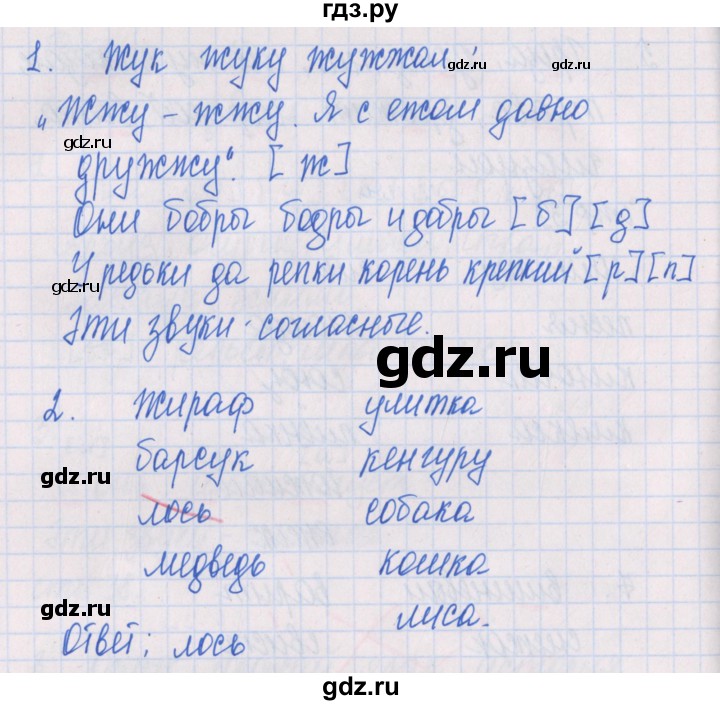 гдз.ру
1. Жук жуку жужжал:
gdz.ru gdz.ru
„Жжу – жжу. Я с ежом давно
gdz.ru
дружжу“. [ж]
Они бобры бодры и добры [б] [д]
У редьки да репки корень крепкий [р] [п]
gdz.ru gdz.ru
Эти звуки - согласные.
gdz.ru
2. жираф улитка
барсук кенгуру
gdz.ru
лось собака
медведь кошка
gdz.ru
лиса.
Ответ: лось
gdz.ru
gdz.ru